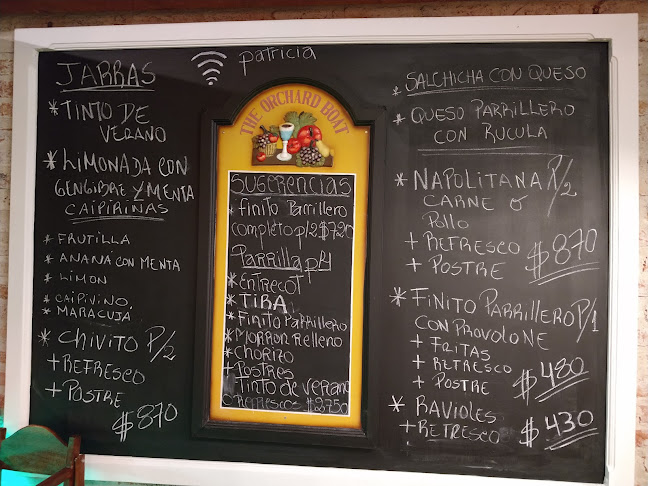 JARRAS
* TINTO DE
VERANO
* LIMONADA CON
GENGIBRE Y MENTA
CAIPIRIÑAS
* FRUTILLA
* ANANA CON MENTA
* LIMON
* CAIPIVINO
* MARACUJÁ
* CHIVITO P/2
+ REFRESCO
+ POSTRE
$870
patricia
THE ORCHARD BOAT
SUGERENCIAS
* Finito Parrillero
completo p/2 $720
Parrilla p/4
* ENTRECOT
* TIRA
* FINITO PARRILLERO
* MORRON Relleno
* CHORIZO
+ POSTRES
+ Tinto de verano
o Refrescos $2750
* SALCHICHA CON QUESO
* QUESO PARRILLERO
CON RUCULA
* NAPOLITANA P/2
CARNE O
Pollo
+ REFRESCO
+ POSTRE
$870
* FINITO PARRILLERO P/1
CON PROVOLONE
+ FRITAS
+ REFRESCO
+ POSTRE
$480
* RAVIOLES
+ REFRESCO
$430